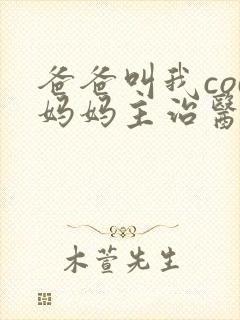 爸爸叫我co
妈妈主治醫
木萱先生